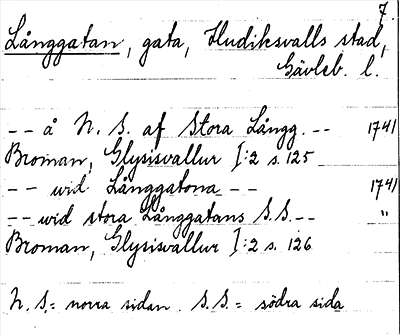 7.
Långgatan, gata, Hudiksvalls stad,
Gävleb. l.
-- å N. S. af Stora Långg. -- 1741
Broman, Glysisvallur I:2 s. 125
-- wid Långgatona -- 1741
-- wid stora Långgatans S.S. -- "
Broman, Glysisvallur I:2 s. 126
N. S. = norra sidan. S. S. = södra sida